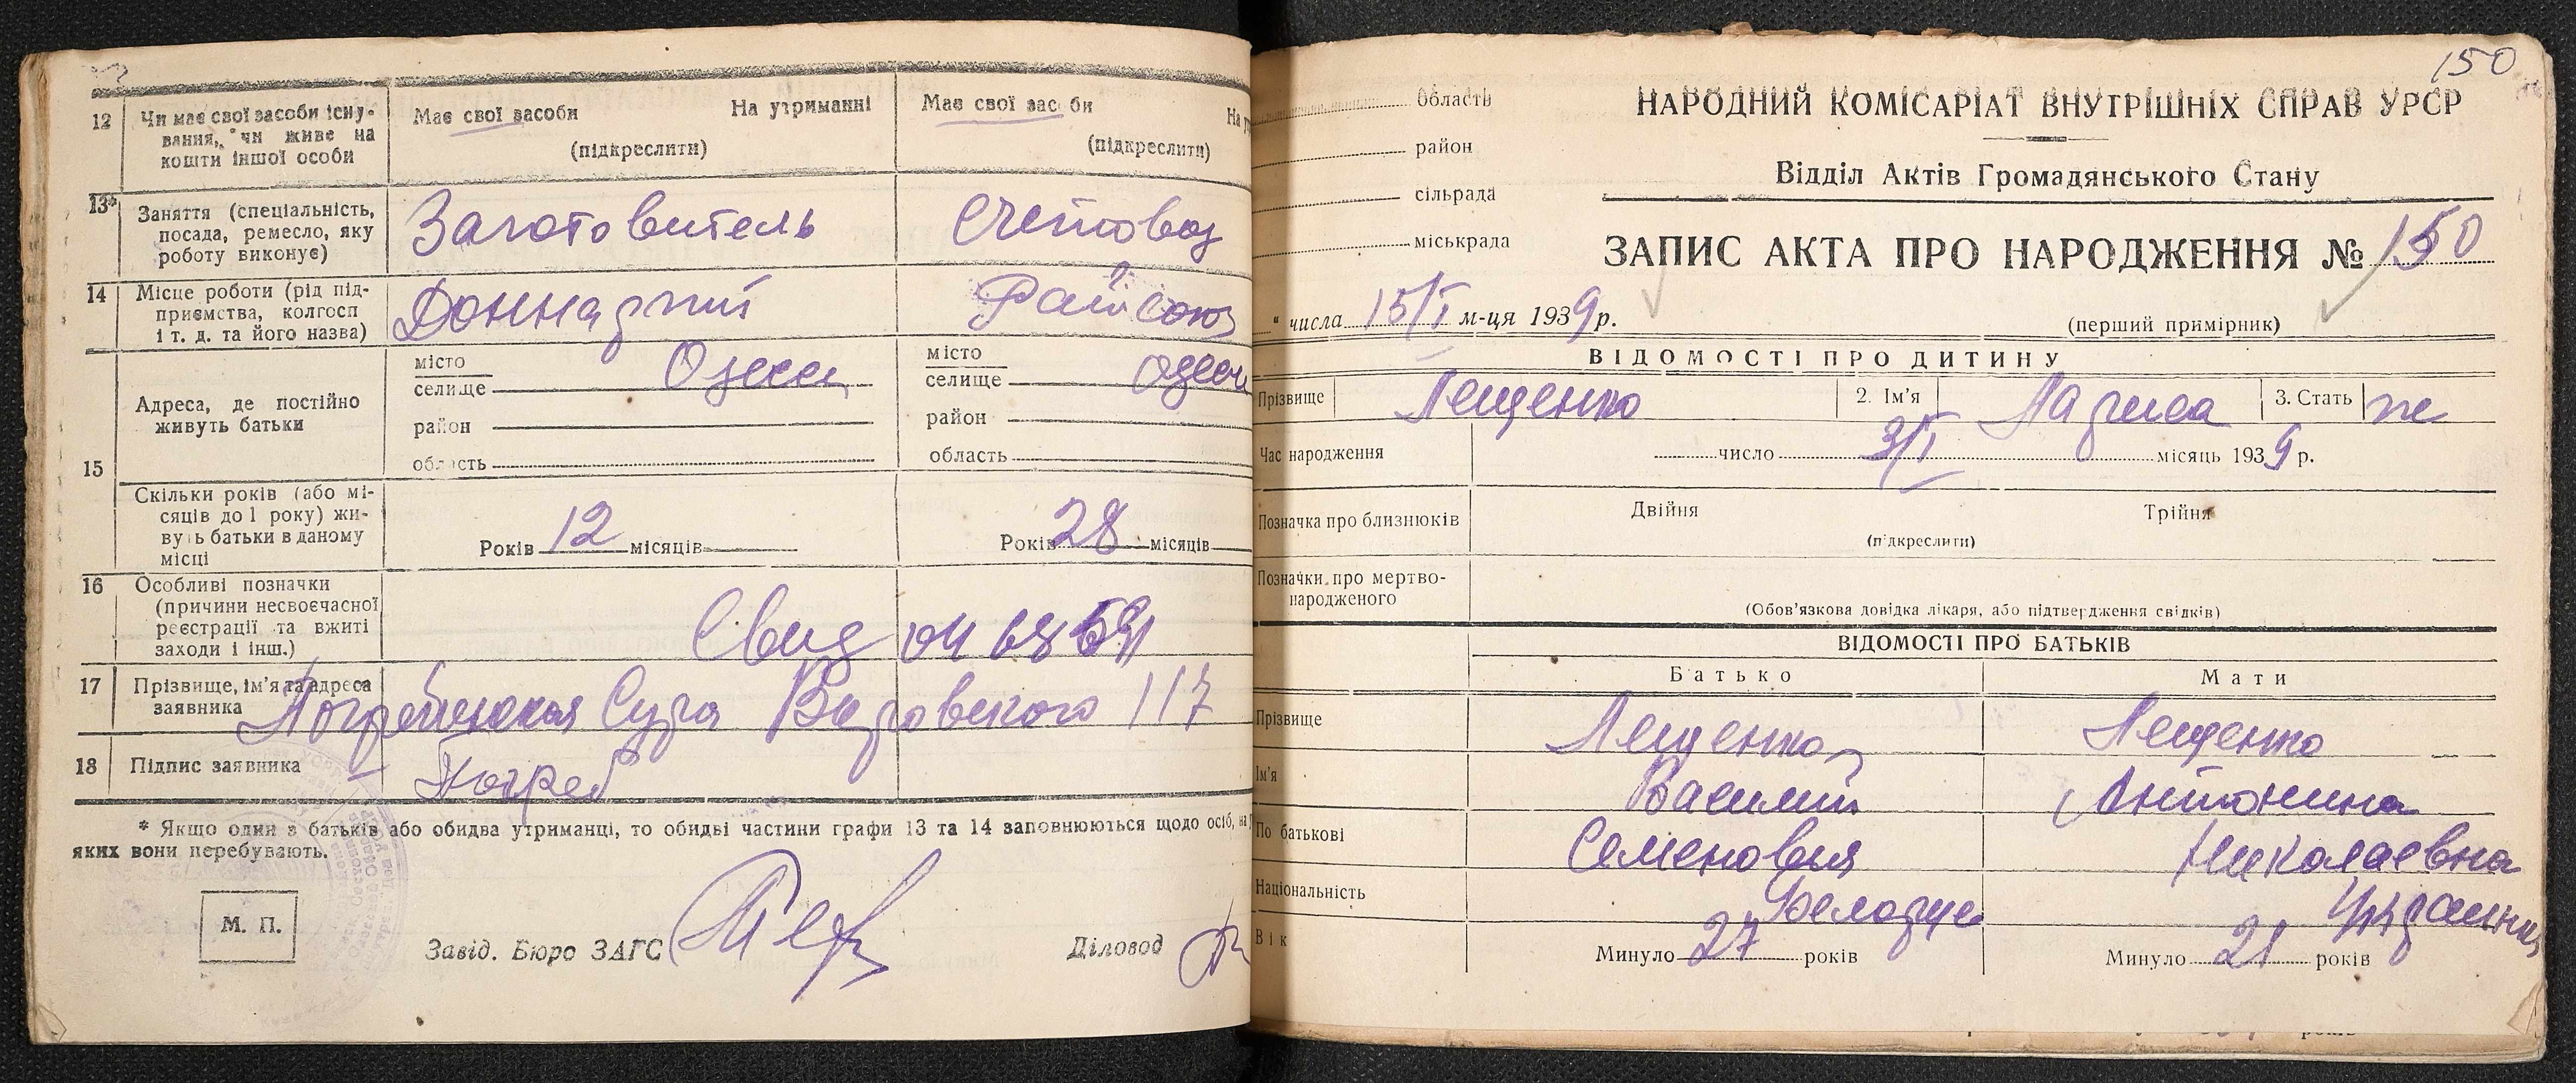 12 Чи має свої засоби існування, чи живе на кошти іншої особи
Має свої засоби На утриманні
(підкреслити)
Має свої засоби На у
(підкреслити)
13* Заняття (спеціальність, посада, ремесло, яку роботу виконує)
Заготовитель
Счетовод
14 Місце роботи (рід підприємства, колгосп і т. д. та його назва)
Райсоюз
15 Адреса, де постійно живуть батьки
місто
селище Одесса
район
область
місто
селище Одесса
район
область
Скільки років (або місяців до 1 року) живуть батьки в даному місці
Років 12 місяців
Років 28 місяців
16 Особливі позначки (причини несвоєчасної реєстрації та вжиті заходи і інш.)
Свид
17 Прізвище, ім'я та адреса заявника
Сура 117
18 Підпис заявника
Погреб
* Якщо один з батьків або обидва утриманці, то обидві частини графи 13 та 14 заповнюються щодо осіб, на у
яких вони перебувають.
М. П.
Завід. Бюро ЗАГС
Діловод
150
область
район
сільрада
міськрада
НАРОДНИЙ КОМІСАРІАТ ВНУТРІШНІХ СПРАВ УРСР
Відділ Актів Громадянського Стану
ЗАПИС АКТА ПРО НАРОДЖЕННЯ № 150
" числа 15/I м-ця 1939 р.
(перший примірник)
ВІДОМОСТІ ПРО ДИТИНУ
Прізвище Лещенко 2. Ім'я Лариса 3. Стать ж
Час народження число 3/I місяць 1939 р.
Позначка про близнюків Двійня Трійня
(підкреслити)
Позначки про мертвонародженого
(Обов'язкова довідка лікаря, або підтвердження свідків)
ВІДОМОСТІ ПРО БАТЬКІВ
Батько Мати
Прізвище Лещенко Лещенко
Ім'я Василий Антонина
По батькові Семенович Николаевна
Національність Белорус Украинка
Вік Минуло 27 років Минуло 21 років